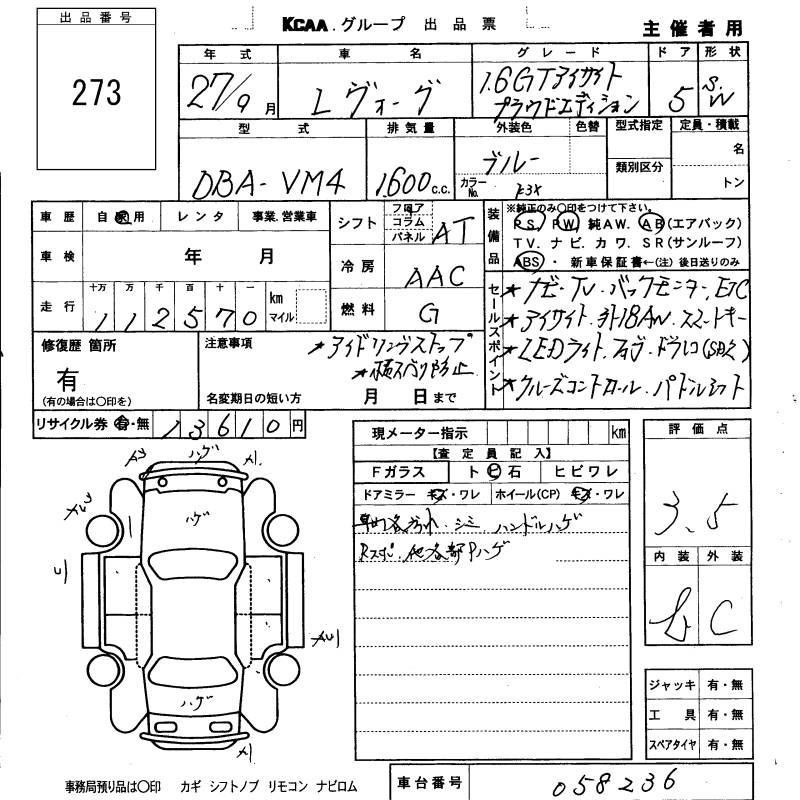 KCAA.グループ 出品票
主催者用
出品番号
273
年式 車名 グレード ドア 形状
27/9月 レヴォーグ 1.6GTアイサイト プラウドエディション 5 S.W
型式 排気量 外装色 色替 型式指定 定員・積載
DBA-VM4 1600c.c. ブルー 名
カラーNo. K3X 類別区分 トン
車歴 自家用 レンタ 事業.営業車
シフト フロア コラム パネル AT
装備品 ※純正のみ〇印をつけて下さい。
PS. PW. 純AW. AB(エアバック)
TV. ナビ. カワ. SR(サンルーフ)
ABS・ 新車保証書←(注)後日送りのみ
車検 年 月
冷房 AAC
走行 十万 万 千 百 十 一 km マイル
112570
燃料 G
セールスポイント
★ナビ・TV.バックモニター,ETC
★アイサイト.外18AW.スマートキー
★LEDライト.フォグ.ドラレコ(SD欠)
★クルーズコントロール.パドルシフト
修復歴 箇所
有
(有の場合は〇印を)
注意事項
★アイドリングストップ
★横スベリ防止
名変期日の短い方 月 日まで
リサイクル券 有・無 13610円
現メーター指示 km
【査定員記入】
Fガラス ト ビ 石 ヒビワレ
ドアミラー キズ・ワレ ホイール(CP) キズ・ワレ
シミ ハンドルハゲ
各部Pハゲ
評価点
3.5
内装 外装
b C
ハゲ
ハゲ
ハゲ
ジャッキ 有・無
工具 有・無
スペアタイヤ 有・無
事務局預り品は〇印 カギ シフトノブ リモコン ナビロム
車台番号 058236